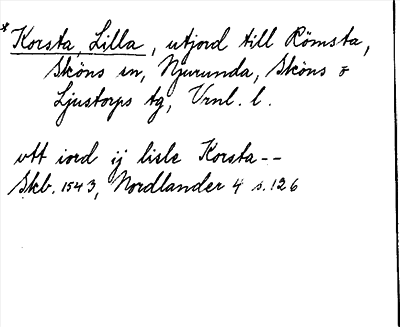 * Korsta, Lilla, utjord till Römsta,
Sköns sn, Njurunda, Sköns o
Ljustorps tg, Vrnl. l.
vtt iord ij lisle Korsta--
Skb. 1543, Nordlander 4 s. 126